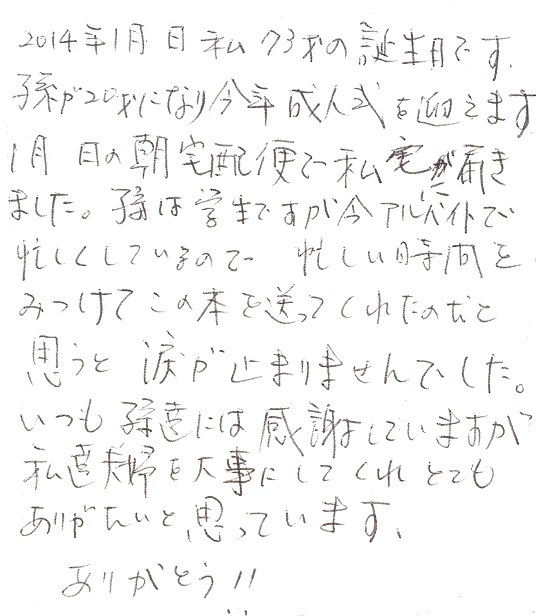 2014年1月 日 私 73才の誕生日です.
孫が20才になり今年成人式を迎えます
1月 日の朝宅配便で私宛に届き
ました。孫は学生ですが今アルバイトで
忙しくしているので 忙しい時間を
みつけてこの本を送ってくれたのだと
思うと 涙が止まりませんでした。
いつも孫達には感謝はしていますが
私達夫婦を大事にしてくれとても
ありがたいと思っています.
ありがとう!!